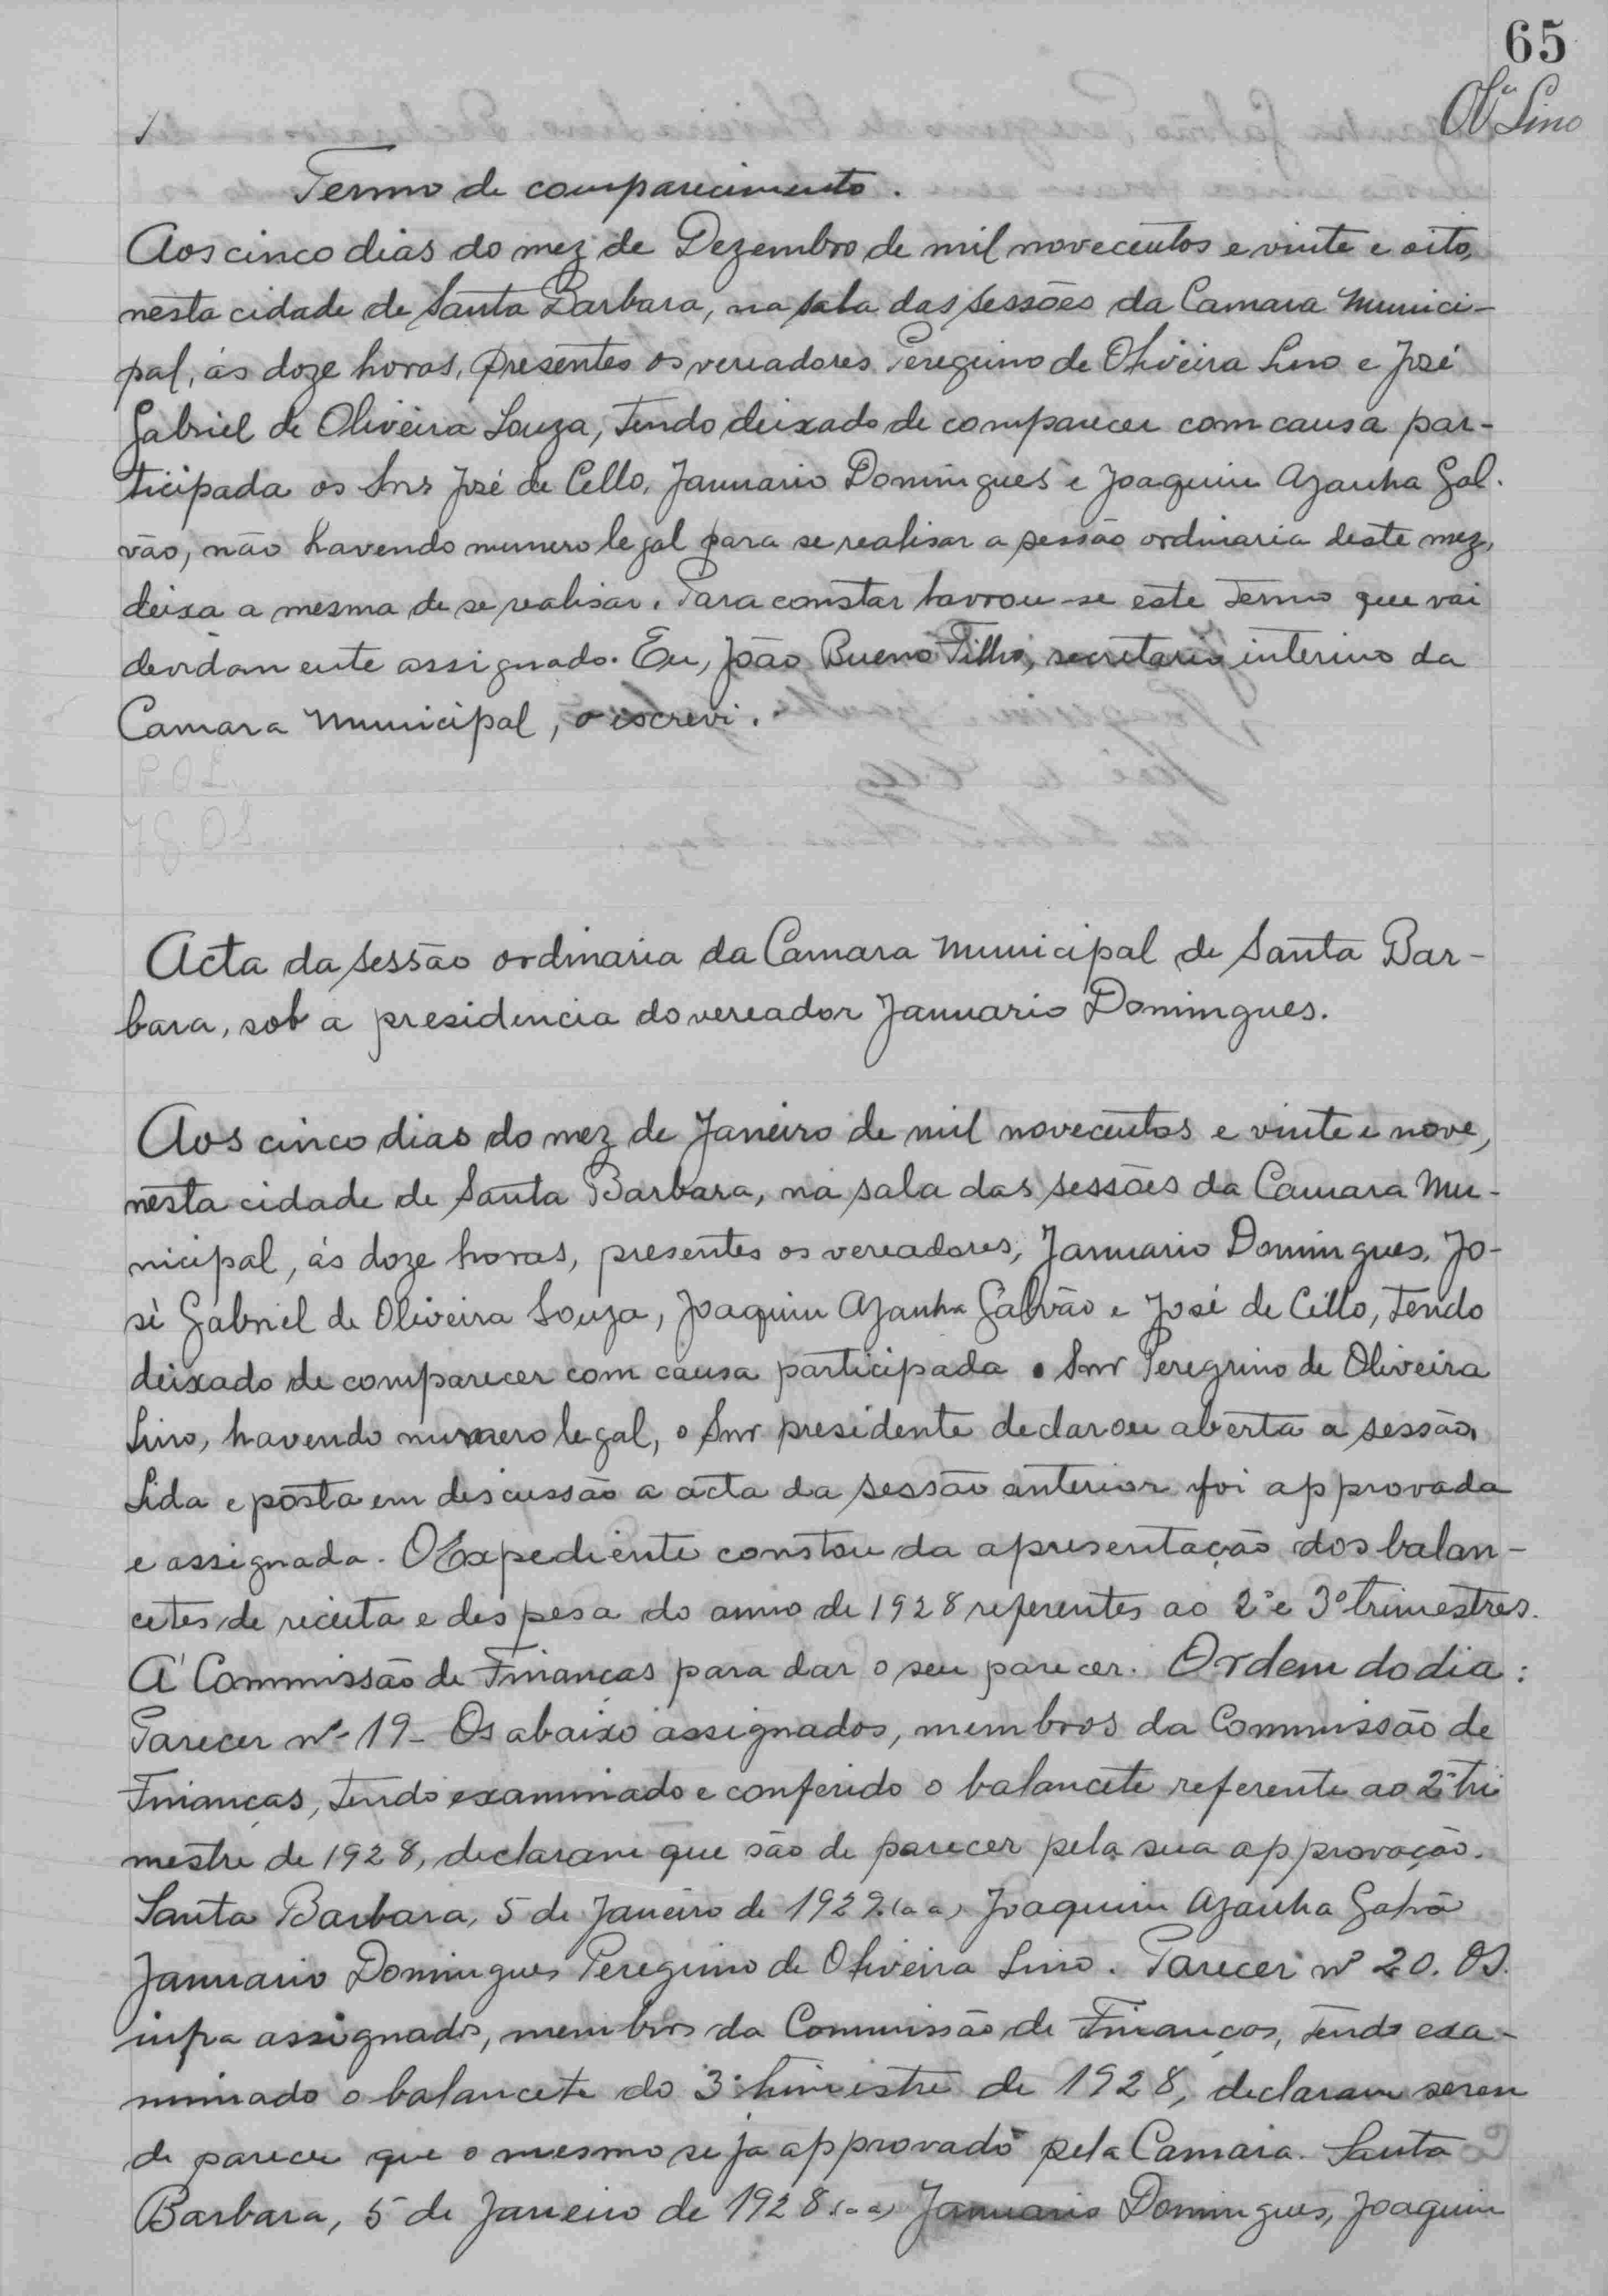 65
Olª Lino
Termo de comparecimento.
Aos cinco dias do mez de Dezembro de mil novecentos e vinte e oito,
nesta cidade de Santa Barbara, na sala das sessões da Camara Munici-
pal, ás doze horas, presentes os vereadores Peregrino de Oliveira Lino e José
Gabriel de Oliveira Souza, tendo deixado de comparecer com causa par-
ticipada os Snrs José de Cello, Januario Domingues e Joaquim Azanha Gal-
vão, não havendo numero legal para se realisar a sessão ordinaria deste mez,
deixa a mesma de se realisar. Para constar lavrou-se este termo que vai
devidamente assignado. Eu, João Bueno Filho, secretario interino da
Camara Municipal, o escrevi.
P.O.L.
J.G.O.S.
Acta da sessão ordinaria da Camara Municipal de Santa Bar-
bara, sob a presidencia do vereador Januario Domingues.
Aos cinco dias do mez de Janeiro de mil novecentos e vinte e nove,
nesta cidade de Santa Barbara, na sala das sessões da Camara Mu-
nicipal, ás doze horas, presentes os vereadores, Januario Domingues, Jo-
sé Gabriel de Oliveira Souza, Joaquim Azanha Galvão e José de Cillo, tendo
deixado de comparecer com causa participada o Snr Peregrino de Oliveira
Lino, havendo numero legal, o Snr presidente declarou aberta a sessão.
Lida e posta em discussão a acta da sessão anterior foi approvada
e assignada. O Expediente constou da apresentação dos balan-
cetes de receita e despesa do anno de 1928 referentes ao 2º e 3º trimestres.
A' Commissão de Finanças para dar o seu parecer. Ordem do dia:
Parecer nº 19 - Os abaixo assignados, membros da Commissão de
Finanças, tendo examinado e conferido o balancete referente ao 2º tri
mestre de 1928, declaram que são de parecer pela sua approvação.
Santa Barbara, 5 de Janeiro de 1929. (a a) Joaquim Azanha Galvão
Januario Domingues Peregrino de Oliveira Lino. Parecer nº 20. Os
infra assignados, membros da Commissão de Finanças, tendo exa-
minado o balancete do 3º trimestre de 1928, declaram serem
de parecer que o mesmo seja approvado pela Camara. Santa
Barbara, 5 de Janeiro de 1928. (a a) Januario Domingues, Joaquim